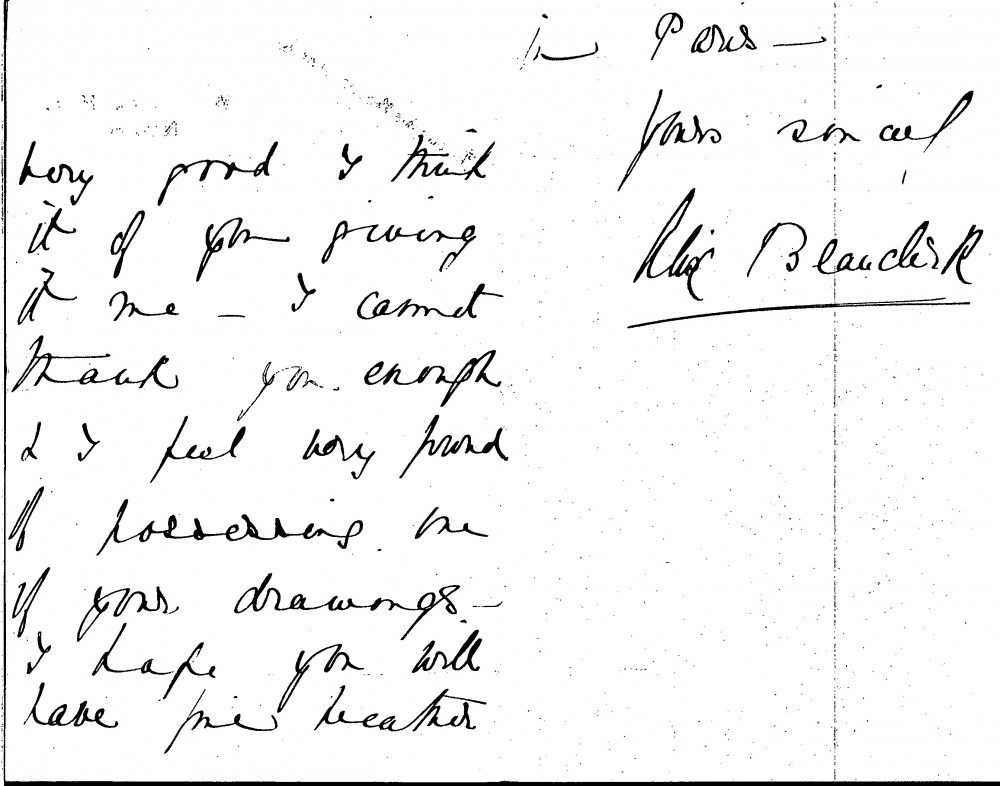 very good I think
it of you giving
it me – I cannot
thank you enough
& I feel very proud
of possessing one
of your drawings –
I hope you will
have fine weather
in Paris –
yours sincerely